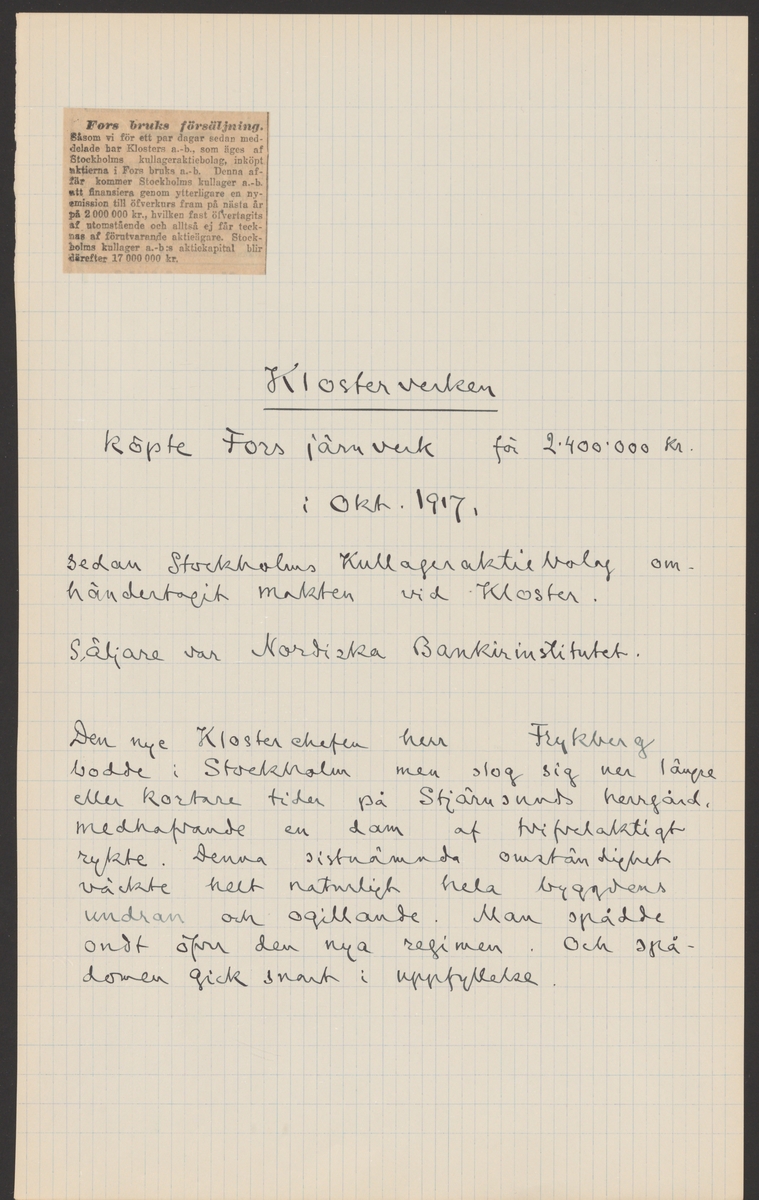 Fors bruks försäljning.
Såsom vi för ett par dagar sedan med-
delade har Klosters a.-b., som äges af
Stockholms kullageraktiebolag, inköpt
aktierna i Fors bruks a.-b. Denna af-
fär kommer Stockholms kullager a.-b.
att finansiera genom ytterligare en ny-
emission till öfverkurs fram på nästa år
på 2 000 000 kr., hvilken fast öfvertagits
af utomstående och alltså ej får teck-
nas af förutvarande aktieägare. Stock-
holms kullager a.-b:s aktiekapital blir
därefter 17 000 000 kr.
Klosterverken
köpte Fors järnverk för 2·400·000 Kr.
i Okt. 1917,
sedan Stockholms Kullageraktiebolag om-
händertagit makten vid Kloster.
Säljare var Nordiska Bankirinstitutet.
Den nye Klosterchefen herr Frykberg
bodde i Stockholm men slog sig ner längre
eller kortare tider på Stjärnsunds herrgård,
medhafvande en dam af tvifvelaktigt
rykte. Denna sistnämnda omständighet
väckte helt naturligt hela byggdens
undran och ogillande. Man spådde
ondt öfver den nya regimen. Och spå-
domen gick snart i uppfyllelse.